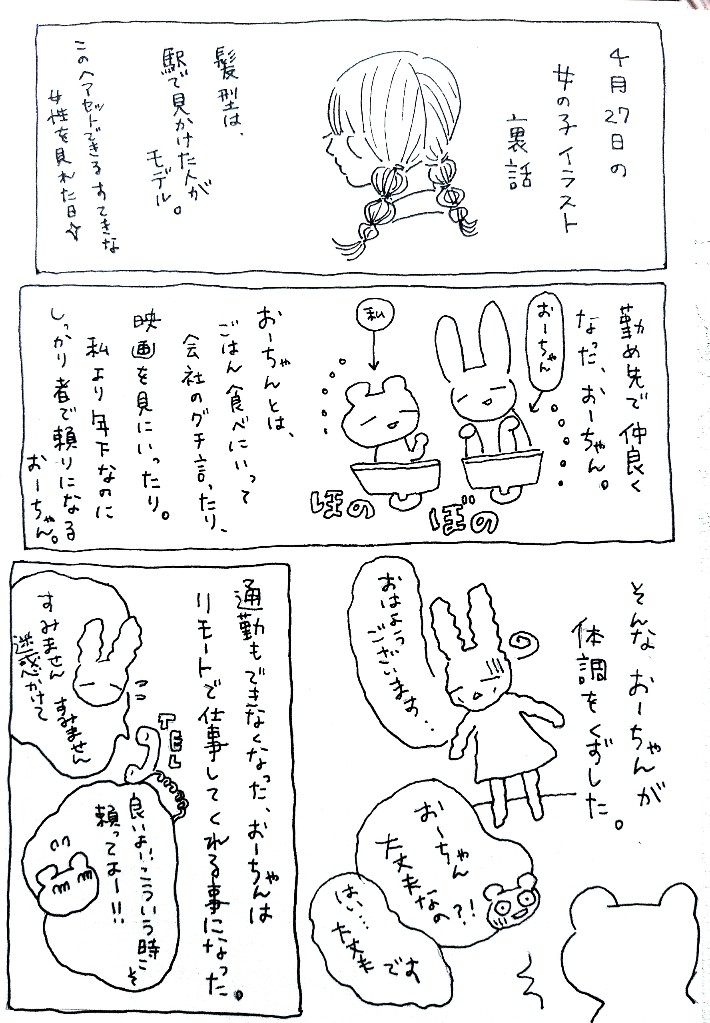 4月27日の
女の子イラスト
裏話
髪型は、
駅で見かけた人が
モデル。
このヘアセットできるすてきな
女性を見れた日☆
勤め先で仲良く
なった、おーちゃん。
おーちゃん
私
ほのぼの
おーちゃんとは、
ごはん食べにいって
会社のグチ言ったり、
映画を見にいったり。
私より年下なのに
しっかり者で頼りになる
おーちゃん。
そんなおーちゃんが
体調をくずした。
おはよう
ございます..
おーちゃん
大丈夫なの?!
はい…
大丈夫です
通勤もできなくなった、おーちゃんは
リモートで仕事してくれる事になった。
TEL
すみません すみません
迷惑かけて
良いよ!!こういう時こそ
頼ってよー!!